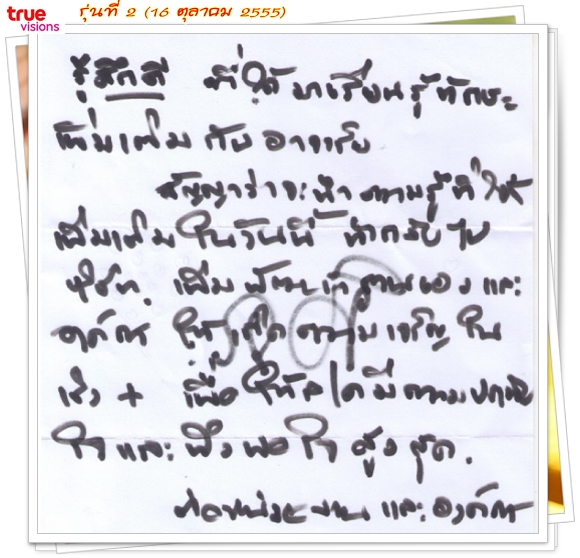 true
visions
รุ่นที่ 2 (16 ตุลาคม 2555)
รู้สึกดี ที่ได้มาเรียนรู้ทักษะ
เพิ่มเติม กับอาจารย์
สัญญาว่าจะนำความรู้ที่ได้
เพิ่มเติมในวันนี้ นำกลับไป
เพิ่ม และ
องค์กร ให้เกิดความเจริญใน
เร็ว + เพื่อให้ มีความ
ใจและพึงพอใจสูงสุด.
ต่อหน่วยงาน และองค์กร